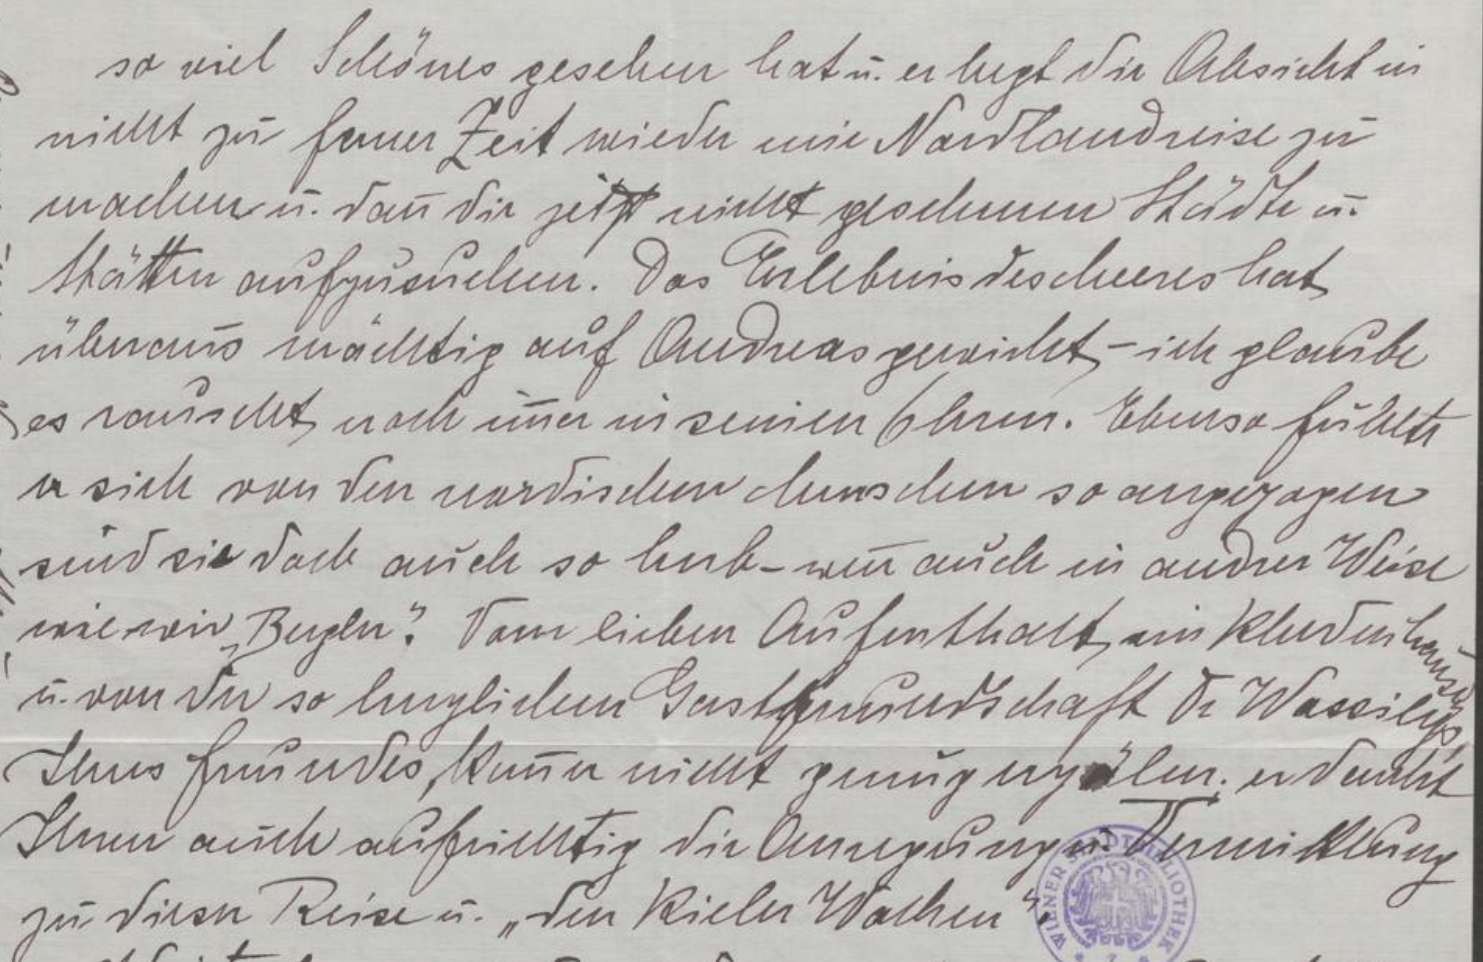 so viel Schönes gesehen hat u. er hegt die Absicht in
nicht zu ferner Zeit wieder eine Nordlandreise zu
machen u. dan̄ die jetzt nicht gesehenen Städte u.
Stätten aufzusuchen. Das Erlebnis des Meeres hat
überaus mächtig auf Andreas gewirkt – ich glaube
es rauscht noch im̄er in seinen Ohren. Ebenso fühlte
er sich von den nordischen Menschen so angezogen
sind sie doch auch so herb – wen̄ auch in andrer Weise
wie wir „Bergler". Vom lieben Aufenthalt im
u. von der so herzlichen Gastfreundschaft Dr Wassilys,
Ihres Freundes, kan̄ er nicht genug erzälen. er dankt
Ihnen auch aufrichtig die Anregung u. Vermittlung
zu dieser Reise u. „den Kieler Wochen".
WIENER STADTBIBLIOTHEK